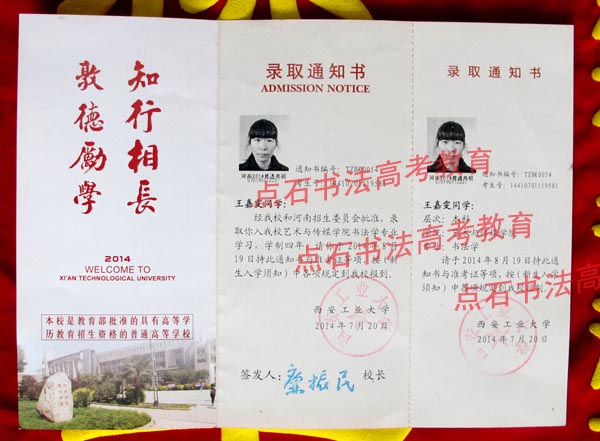 知行相長
敦德勵學
2014
WELCOME TO
XI'AN TECHNOLOGICAL UNIVERSITY
本校是教育部批准的具有高等学
历教育招生资格的普通高等学校
录取通知书
ADMISSION NOTICE
通知书编号：TZBK0054
考生号：14410701119581
王嘉雯同学：
经我校和河南招生委员会批准，录
取你入我校艺术与传媒学院书法学专业
学习，学制四年。请你于2014年8月
19日持此通知书与准考证等项，按《新
生入学须知》中各项规定到我校报到。
西安工业大学
2014年7月20日
签发人：廉振民 校长
录取通知书
通知书编号：TZBK0054
考生号：14410701119581
王嘉雯同学：
层次：本科
专业：书法学
请于2014年8月19日持此通
知书与准考证等项，按《新生入学
须知》中各项规定到我校报到。
西安工业大学
2014年7月20日
西安工业大学
西安工业大学
点石书法高考教育
点石书法高考教育
点石书法高